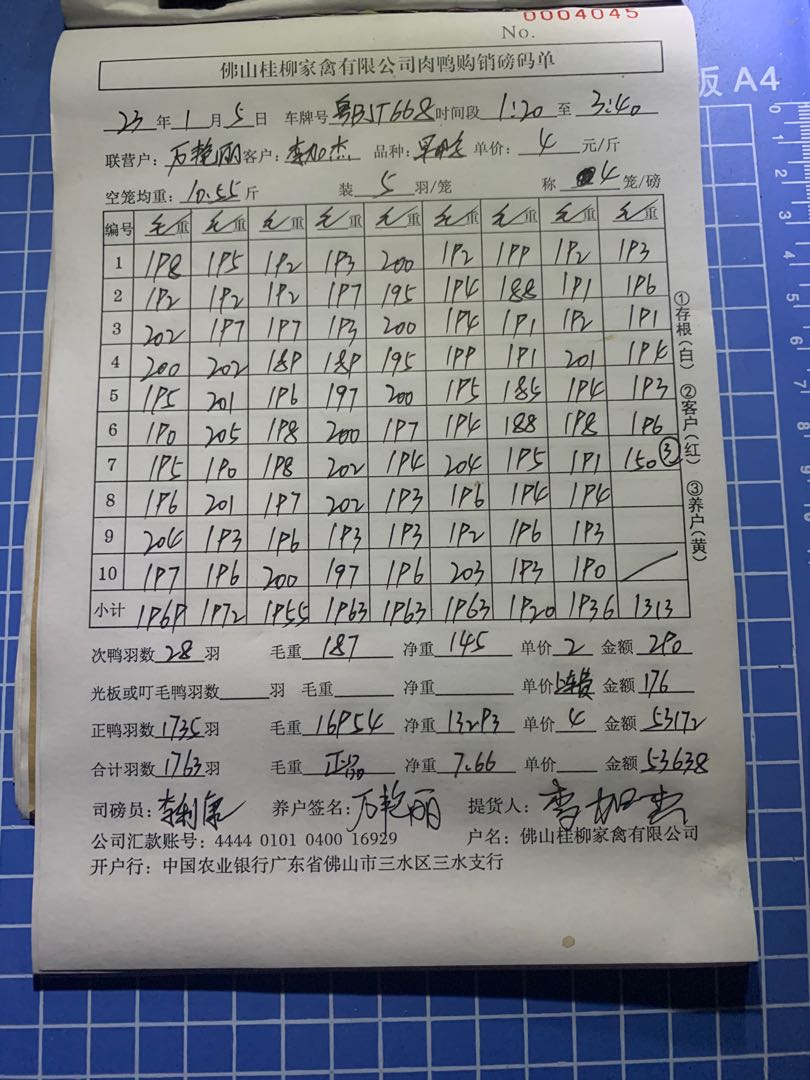 0004045
No.
佛山桂柳家禽有限公司肉鸭购销磅码单
版 A4
23年1月5日 车牌号粤BJT668时间段1:20至3:40
联营户:万艳丽客户:李加杰 品种: 单价:4元/斤
空笼均重:10.55斤 装5羽/笼 称4笼/磅
编号 毛重 毛重 毛重 毛重 毛重 毛重 毛重 毛重 毛重
1 198 195 192 193 200 192 199 192 193
2 192 192 192 197 195 194 188 191 196
3 202 197 197 193 200 194 191 192 191
4 200 202 189 189 195 199 191 201 194
5 195 201 196 197 200 195 185 194 193
6 190 205 198 200 197 194 188 198 196
7 195 190 198 202 194 204 195 191 150③
8 196 201 197 202 193 196 194 194
9 204 193 196 193 193 192 196 193
10 197 196 200 197 196 203 193 190
小计 1969 1972 1955 1963 1963 1963 1920 1936 1313
①存根(白) ②客户(红) ③养户(黄)
次鸭羽数28羽 毛重187 净重145 单价2 金额290
光板或叮毛鸭羽数 羽 毛重 净重 单价 金额176
正鸭羽数1735羽 毛重16954 净重13293 单价4 金额53172
合计羽数1763羽 毛重 净重7.66 单价 金额53638
司磅员: 养户签名:万艳丽 提货人:李加杰
公司汇款账号:4444 0101 0400 16929 户名:佛山桂柳家禽有限公司
开户行:中国农业银行广东省佛山市三水区三水支行